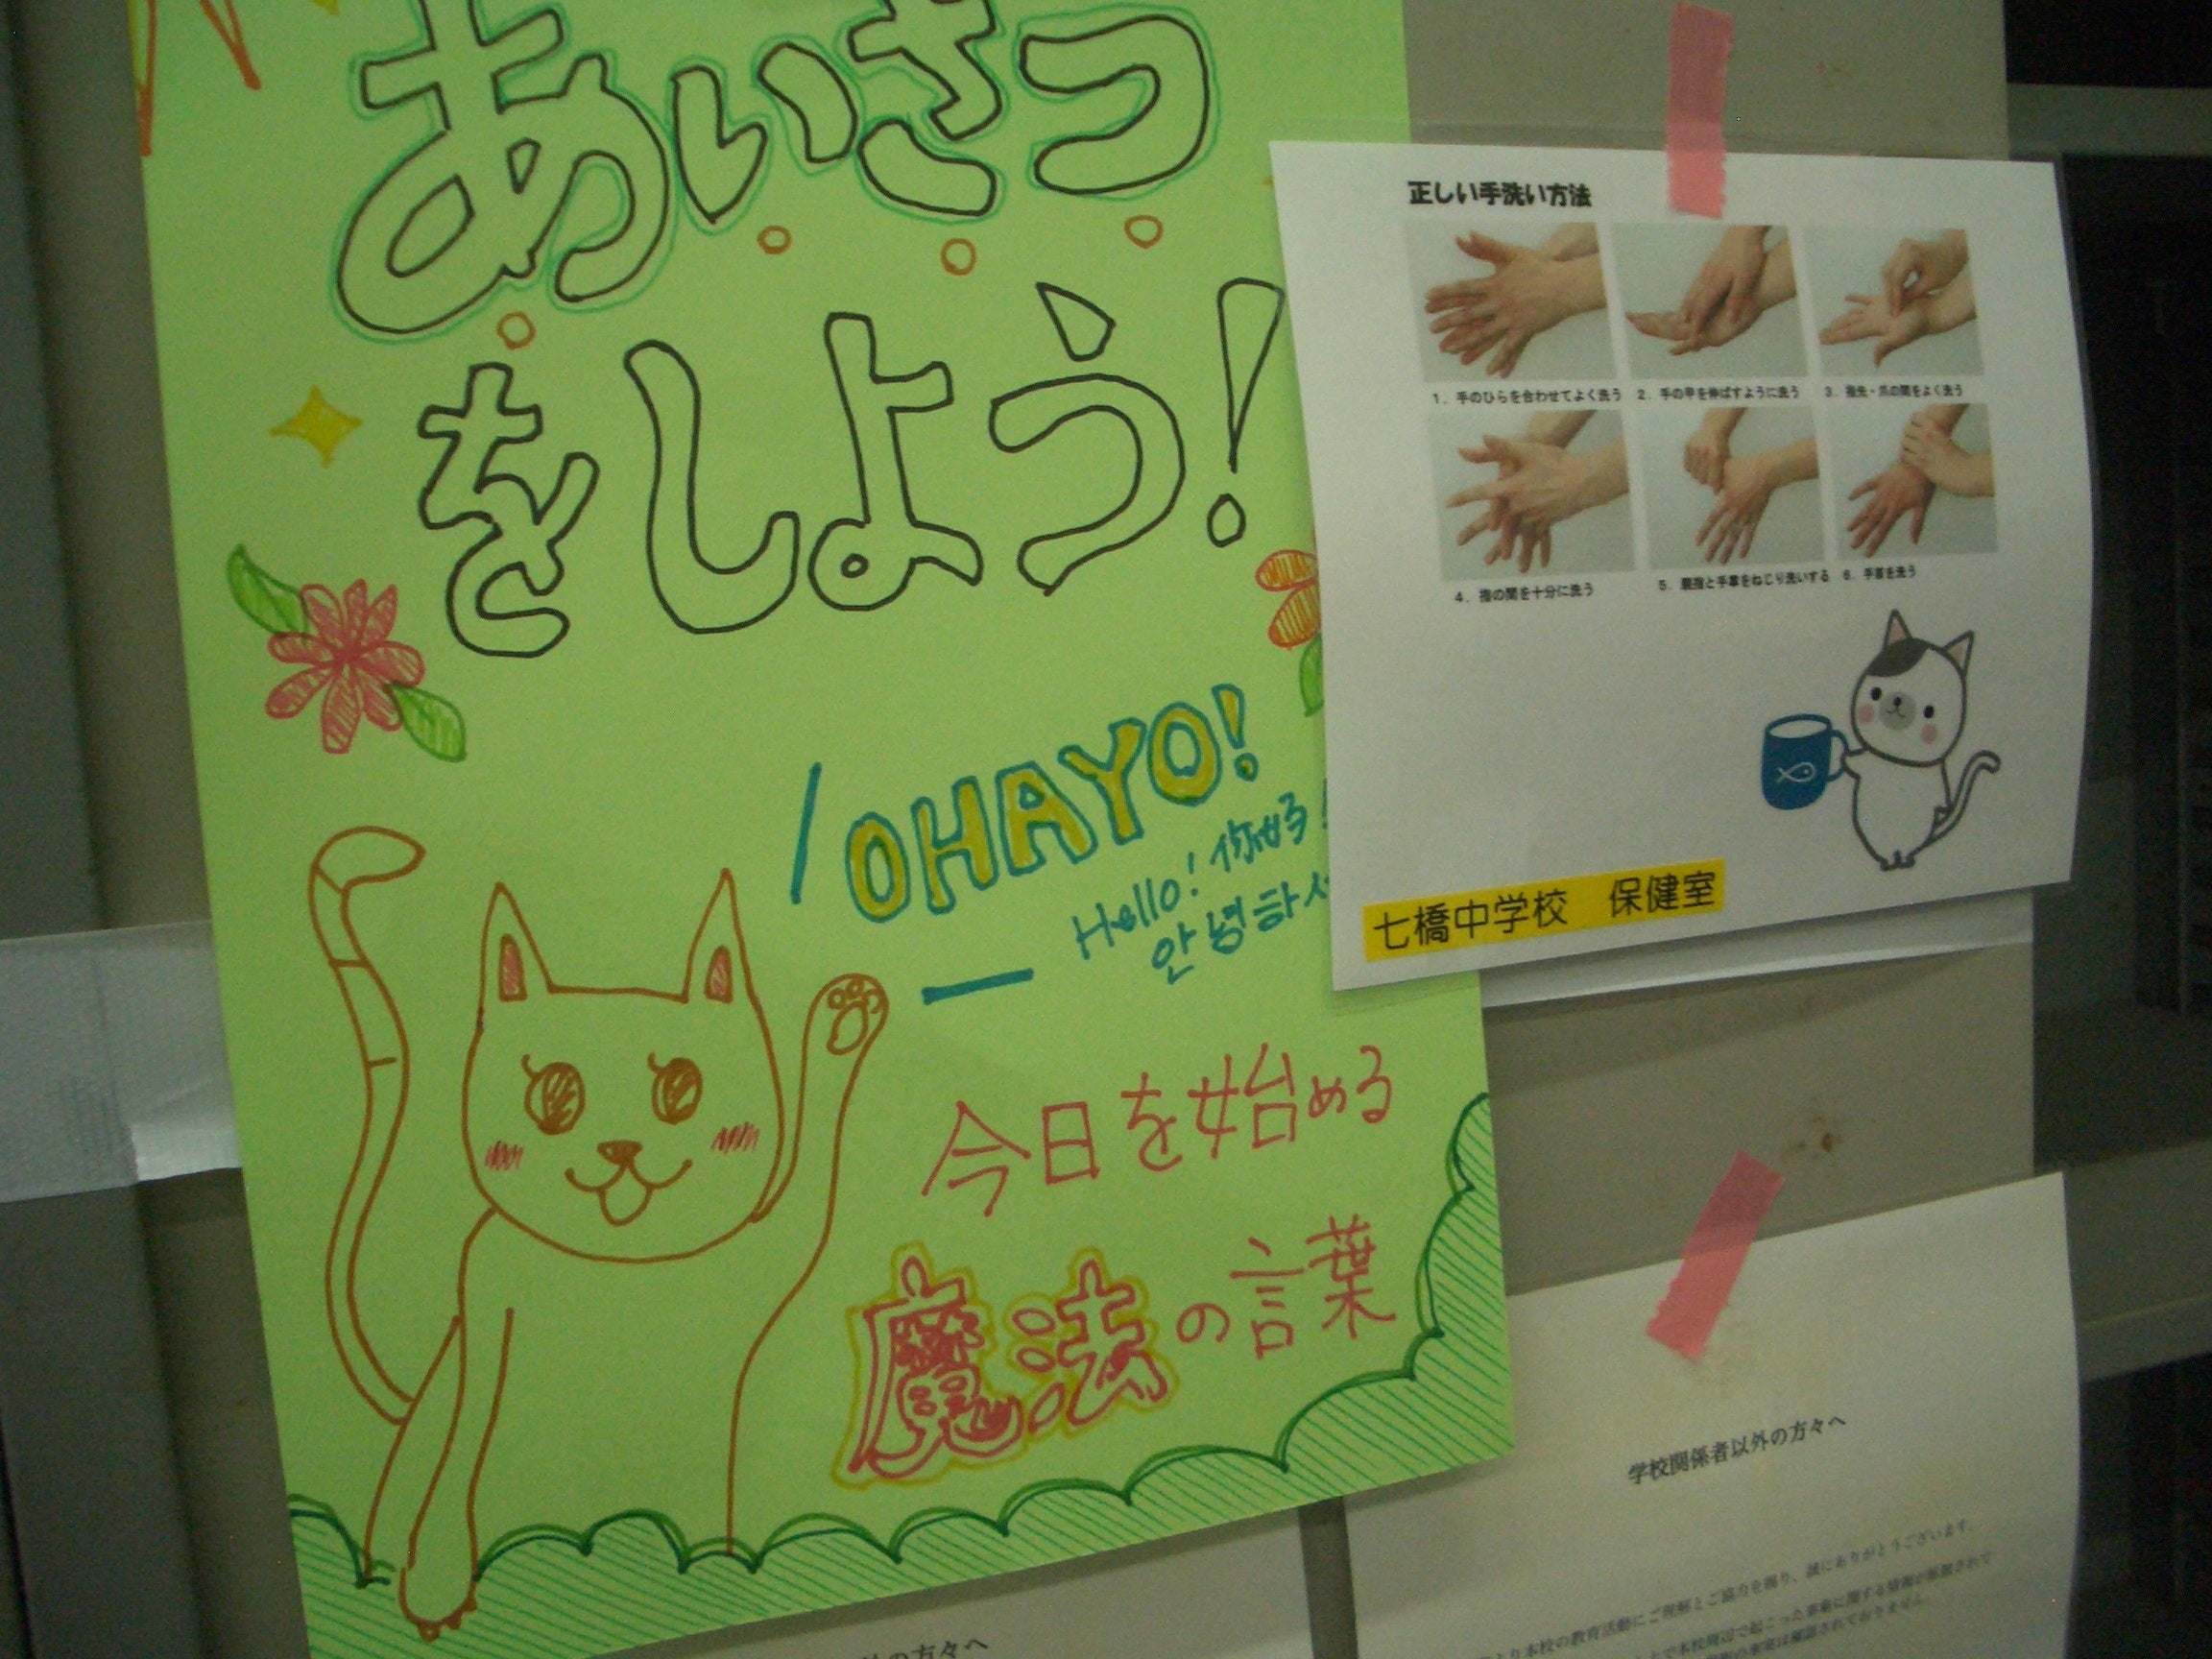 あいさつ
をしよう!
OHAYO!
Hello! 你好!
안녕하
今日を始める
魔法の言葉
正しい手洗い方法
1．手のひらを合わせてよく洗う
2．手の甲を伸ばすように洗う
3．指先・爪の間をよく洗う
4．指の間を十分に洗う
5．親指と手掌をねじり洗いする
6．手首を洗う
七橋中学校　保健室
学校関係者以外の方々へ
より本校の教育活動にご理解とご協力を賜り、誠にありがとうございます。
で本校周辺で起こった事案に関する情報が拡散されて
の事実は確認されておりません。
外の方々へ